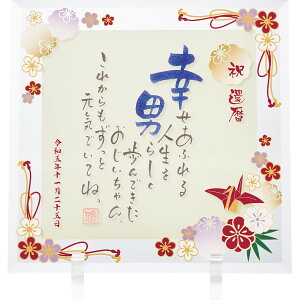 祝 還暦
幸せあふれる
人生を
男らしく
歩んできた
おじいちゃん
これからもずっと
元気でいてね。
令和五年十一月二十五日